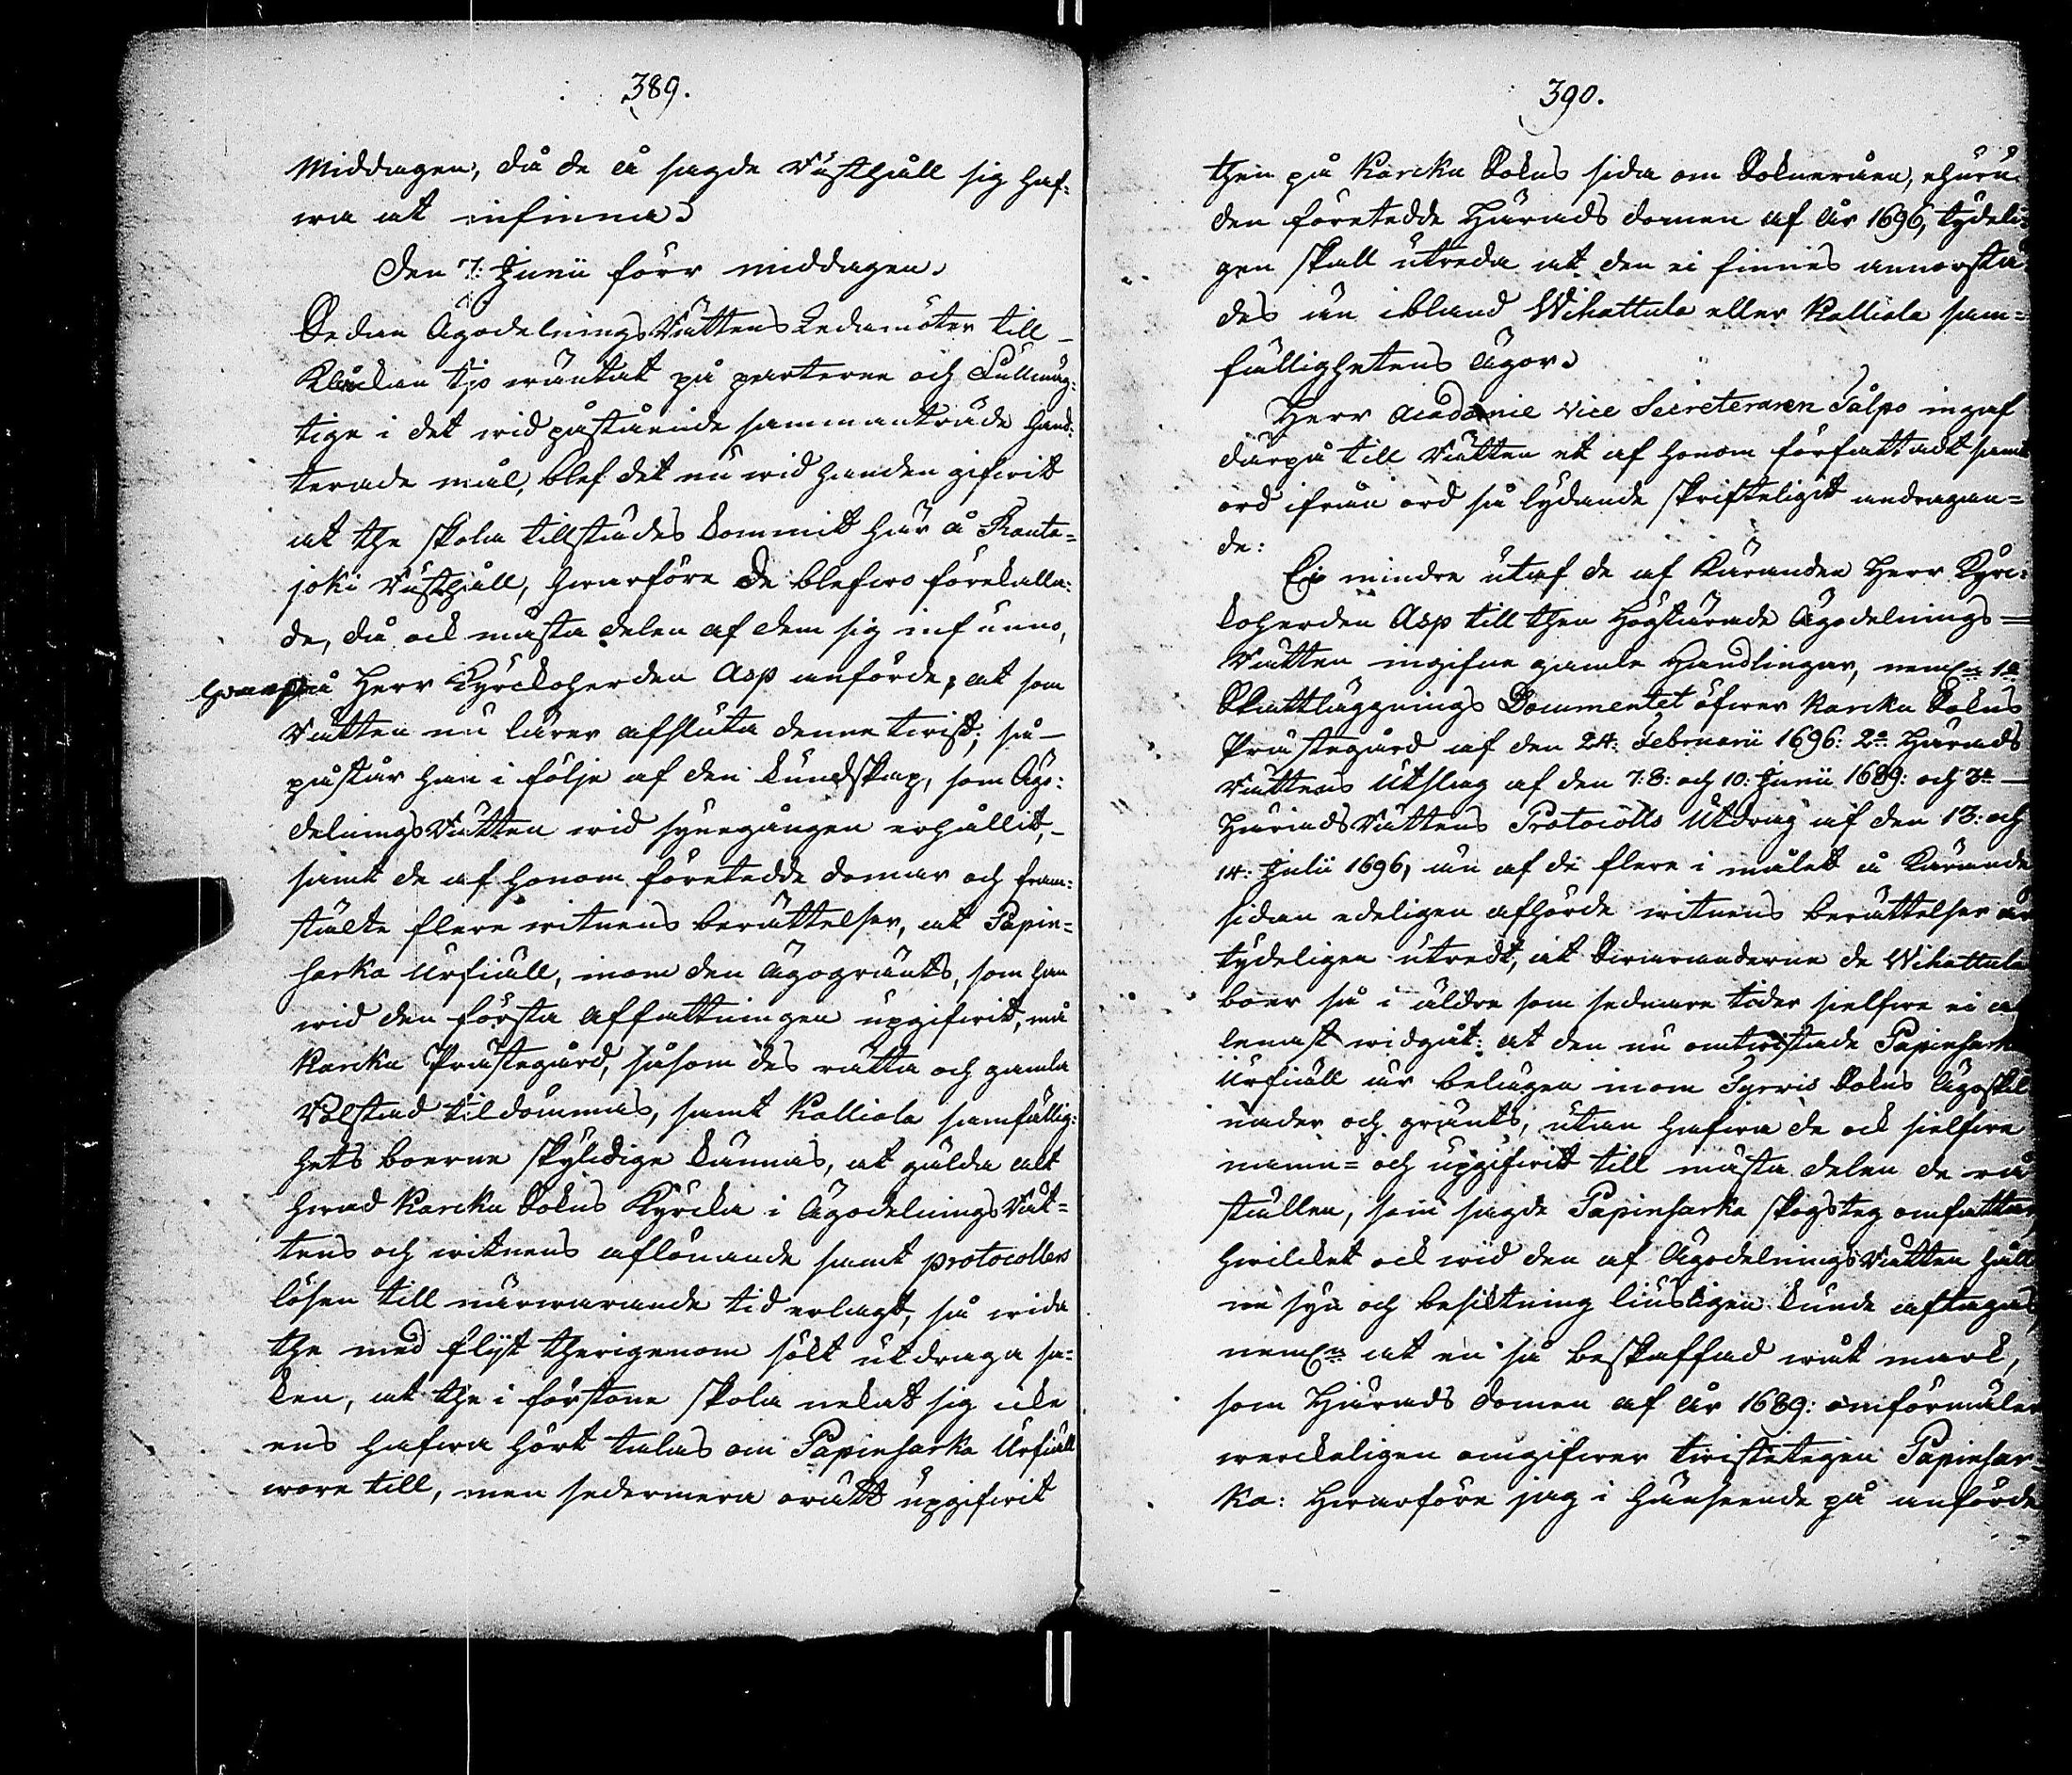 389.
Middagen, då de å sagde Rusthåll sig haf=
wa at infinna.
Den 7: Junii förr middagen.
Sedan ÄgodelningsRättens Ledamöter till
Klåckan tjo wäntat på parterne och Fullmäg=
tige i det wid påstående sammanträde hand=
terade mål, blef det nu wid handen gifwit
at the skola tillstädes kommit här å Ranta=
joki Rusthåll, hwarföre de blefwo förekalla=
de, då ock mästa delen af dem sig infunno,
hwarpå Herr Kyrckoherden Asp anförde, at som
Rätten nu lärer afsluta denne twist; så
påstår han i följe af den kundskap, som Ägo=
delningsRätten wid synegången erhållit,
samt de af honom företedde domar och fram=
stälte flere witnens berättelser, at Papin=
sarka Urfiäll, inom den Ägogränts, som han
wid den första affattningen upgifwit, må
Karcku Prästegård, såsom des rätta och gamla
Bolstad tildömmas, samt Kalliola samfällig=
hets boerne skyldige kännas, at gulda alt
hwad Karcku Sokns Kyrcka i ÄgodelningsRät=
tens och witnens aflönande samt protocollers
lösen till närwarande tid erlagt, så wida
the med flijt therigenom sökt utdraga sa=
ken, at the i förstone skola nekat sig icke
ens hafwa hört talas om Papinsarka Urfiäll
wore till, men sedermera orätt upgifwit
390.
then på Karcku Sokns sida om Sokneråen, ehuru
den företedde Härads domen af år 1696, tydeli=
gen skall utreda at den ei finnes annorstä=
des än ibland Wihattula eller Kalliola sam=
fällighetens ägor.
Herr Academie Vice Secreteraren Salpo ingaf
därpå till Rätten et af honom författadt samt
ord ifrån ord så lydande skrifteligit andragan=
de:
Ej mindre utaf de af Käranden Herr Kyrc=
koherden Asp till then Högtärade Ägodelnings=
Rätten ingifne gamle Handlingar, neml:n 1:o
Skattläggnings Documentet öfwer Karcku Sokns
Prästegård af den 24: Februarii 1696: 2:o Härads
Rättens Utslag af den 7: 8: och 10: Junii 1689: och 3:o
HäradsRättens Protocolls Utdrag af den 13: och
14: Julii 1696, än af de flere i målet å Kärande
sidan edeligen afhörde witnens berättelser är
tydeligen utredt, at Swaranderne de Wihattula
boer så i äldre som sednare tider sielfwe ei a
lenast widgåt: at den nu omtwistade Papinsarka
Urfiäll är belägen inom Tyrwis Sokns Ägoskil
nader och gränts, utan hafwa de ock sielfwe
namn= och upgifwit till mästa delen de rå
ställen, som sagde Papinsarka skogsteg omfattar,
hwilcket ock wid den af ÄgodelningsRätten håll
ne syn och besicktning liusligen kunde aftagas,
neml:n at en så beskaffad wåt mark,
som Härads domen af år 1689: omförmäler
werckeligen omgifwer twistetegen Papinsar=
ka: Hwarföre jag i hänseende på anförde